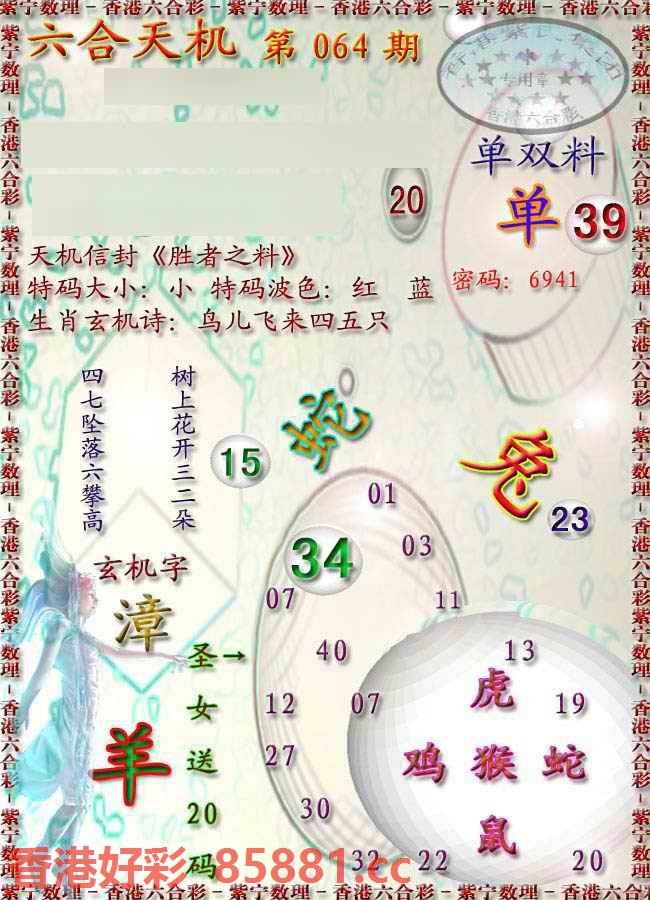 紫宁数理－香港六合彩－紫宁数理－香港六合彩－紫宁数理－香港六合彩
六合天机 第 064 期
专用章
香港六合彩
单双料
20
单 39
天机信封《胜者之料》
特码大小：小 特码波色：红 蓝
密码：6941
生肖玄机诗：鸟儿飞来四五只
四七坠落六攀高
树上花开三二朵
蛇
15
兔
01
23
03
34
玄机字
07
11
漳
圣→
女
送
20
码
40
13
虎
12
07
19
羊
27
鸡 猴 蛇
30
鼠
32
22
20
香港好彩 85881.cc
紫宁数理－香港六合彩－紫宁数理－香港六合彩－紫宁数理－香港六合彩